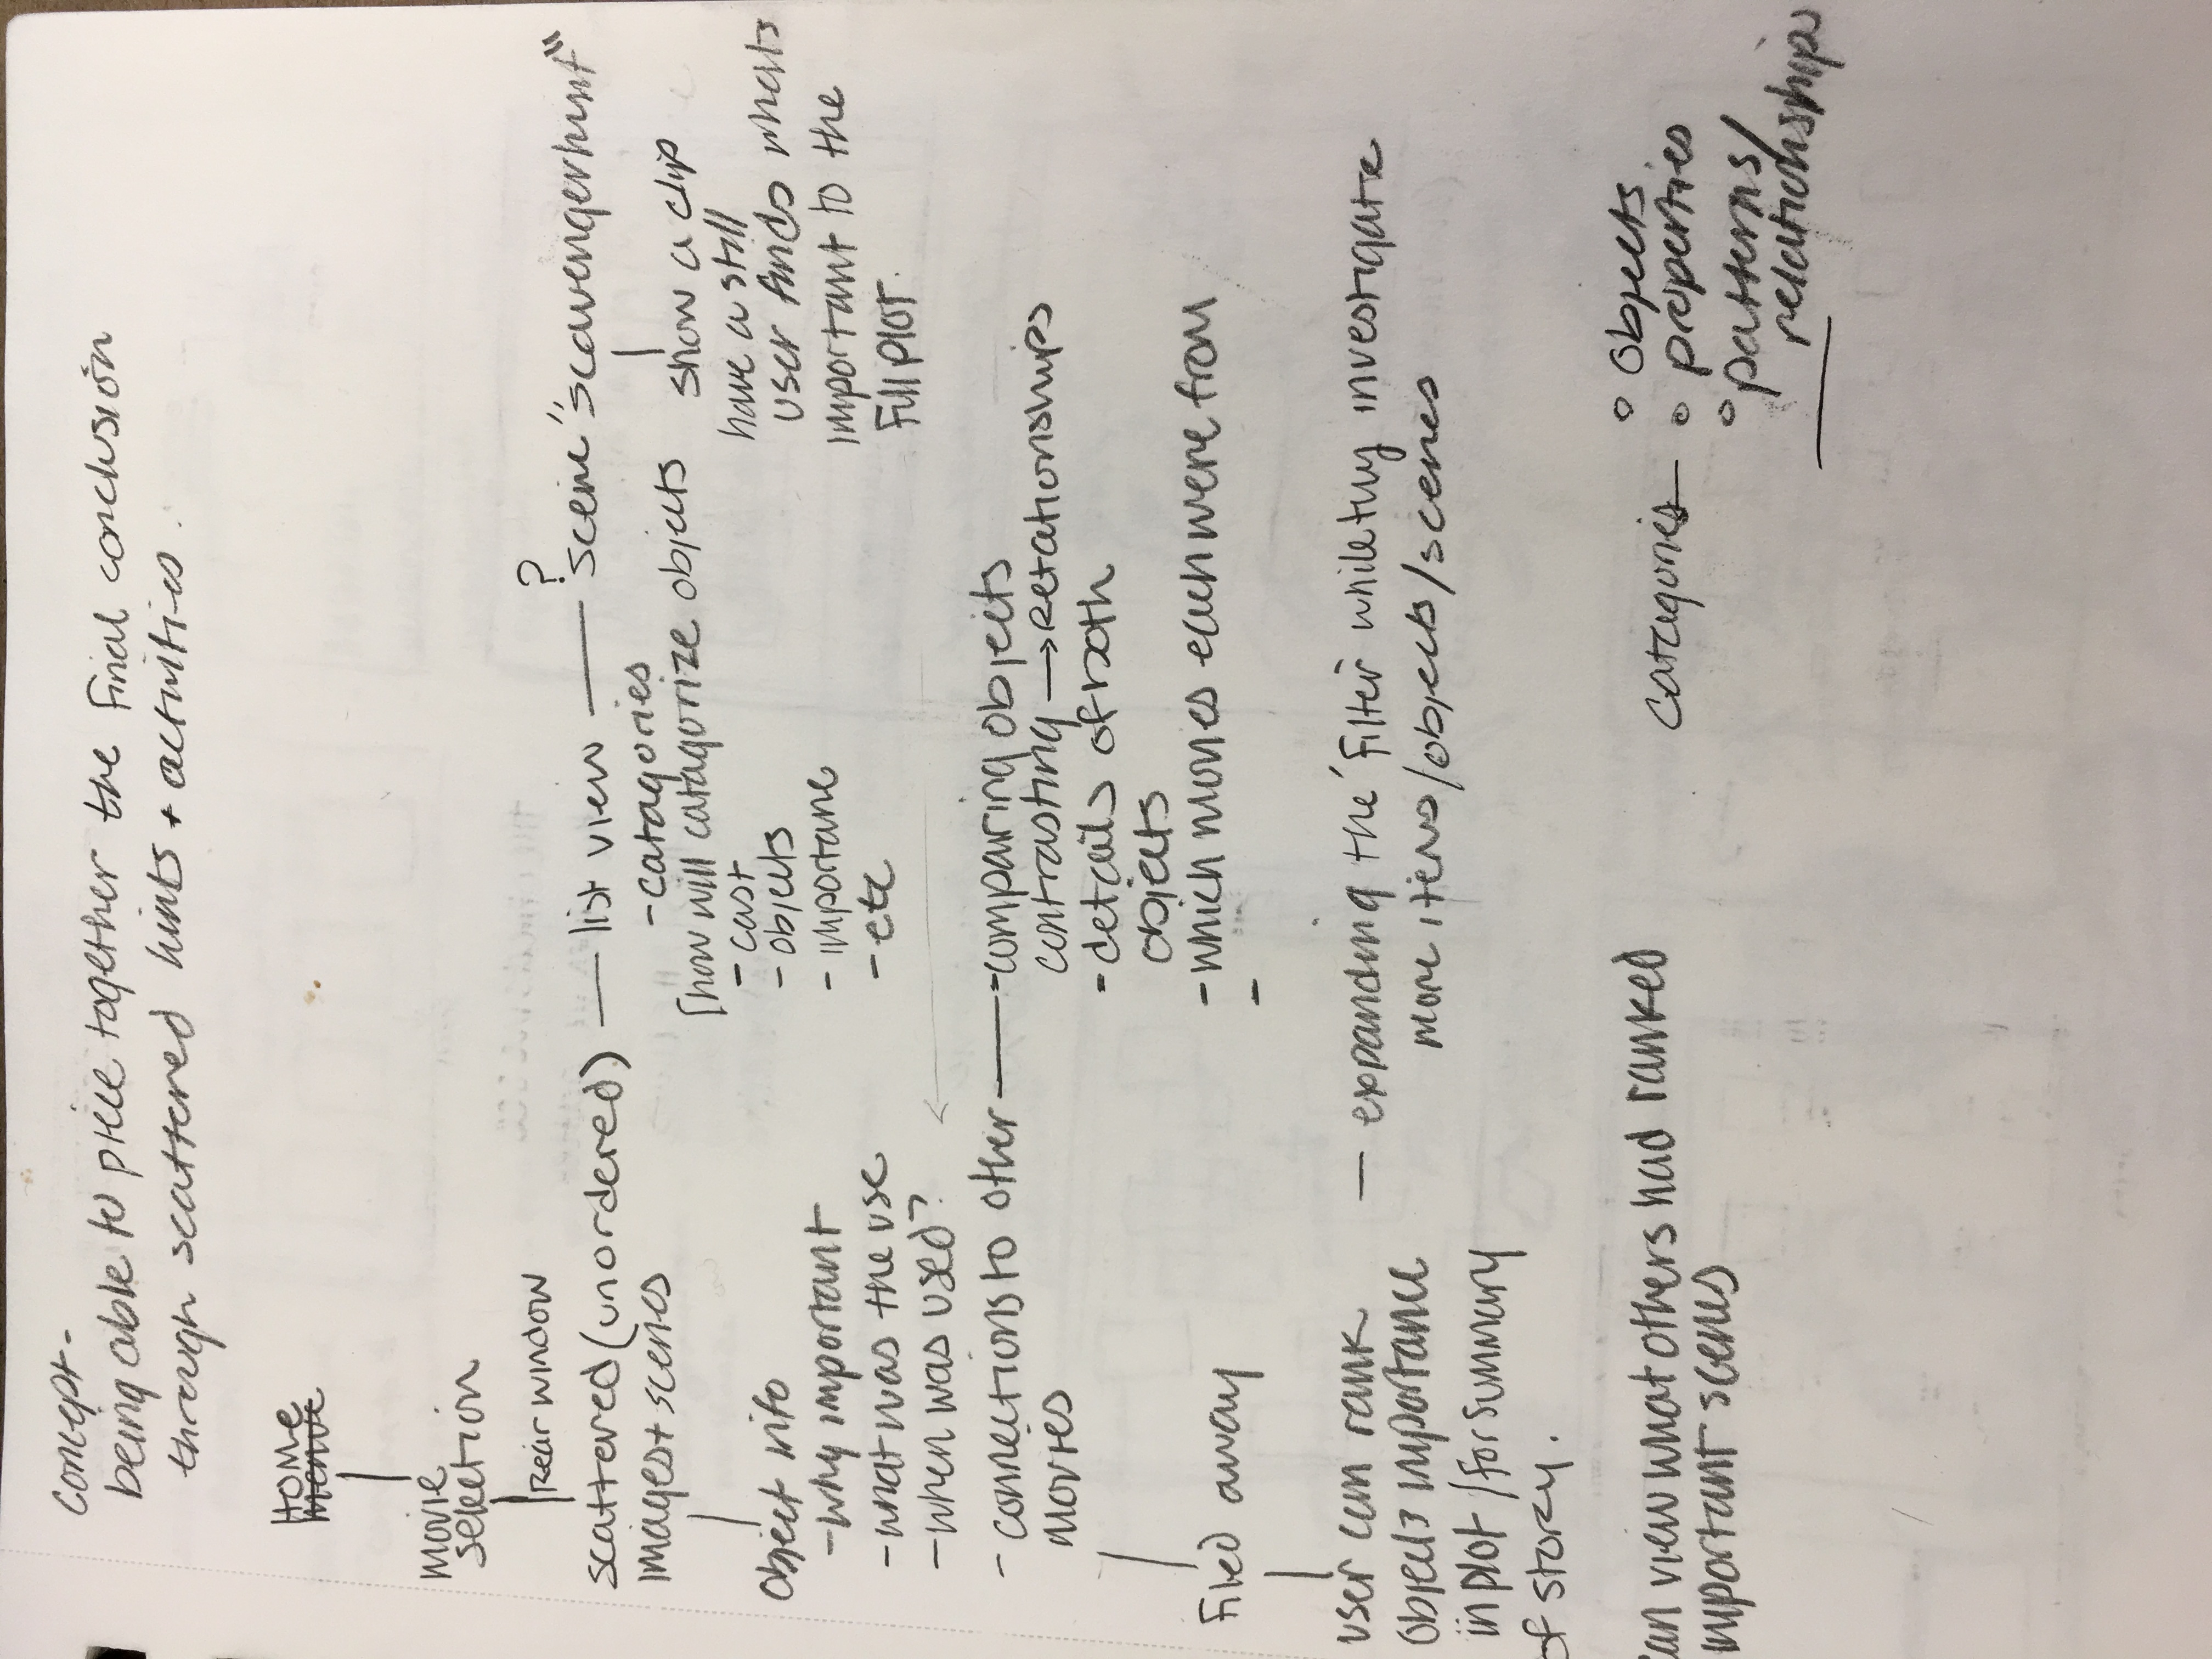 Concept -
being able to piece together the final conclusion
through scattered hints + activities.
HOMe
menue
movie
selection
Rear window
scattered (unordered) — list view — ? scene "scavengerhunt"
images + scenes
- catagories
[how will catagorize objects
- cast
- objects
- importane
- etc
show a clip
have a still
user finds whats
important to the
full plot.
Object info
- why important
- what was the use
- when was used?
- connections to other
movies
- comparing objects
contrasting → Relationships
- details of both
objects
- which movies each were from
-
Filed away
user can rank
objects importance
in plot / for summary
of story.
— expanding the "filter" while they investigate
more items/objects/scenes
can view what others had ranked
important scenes
catagories —
° Objects.
° properties
° patterns/
relationships